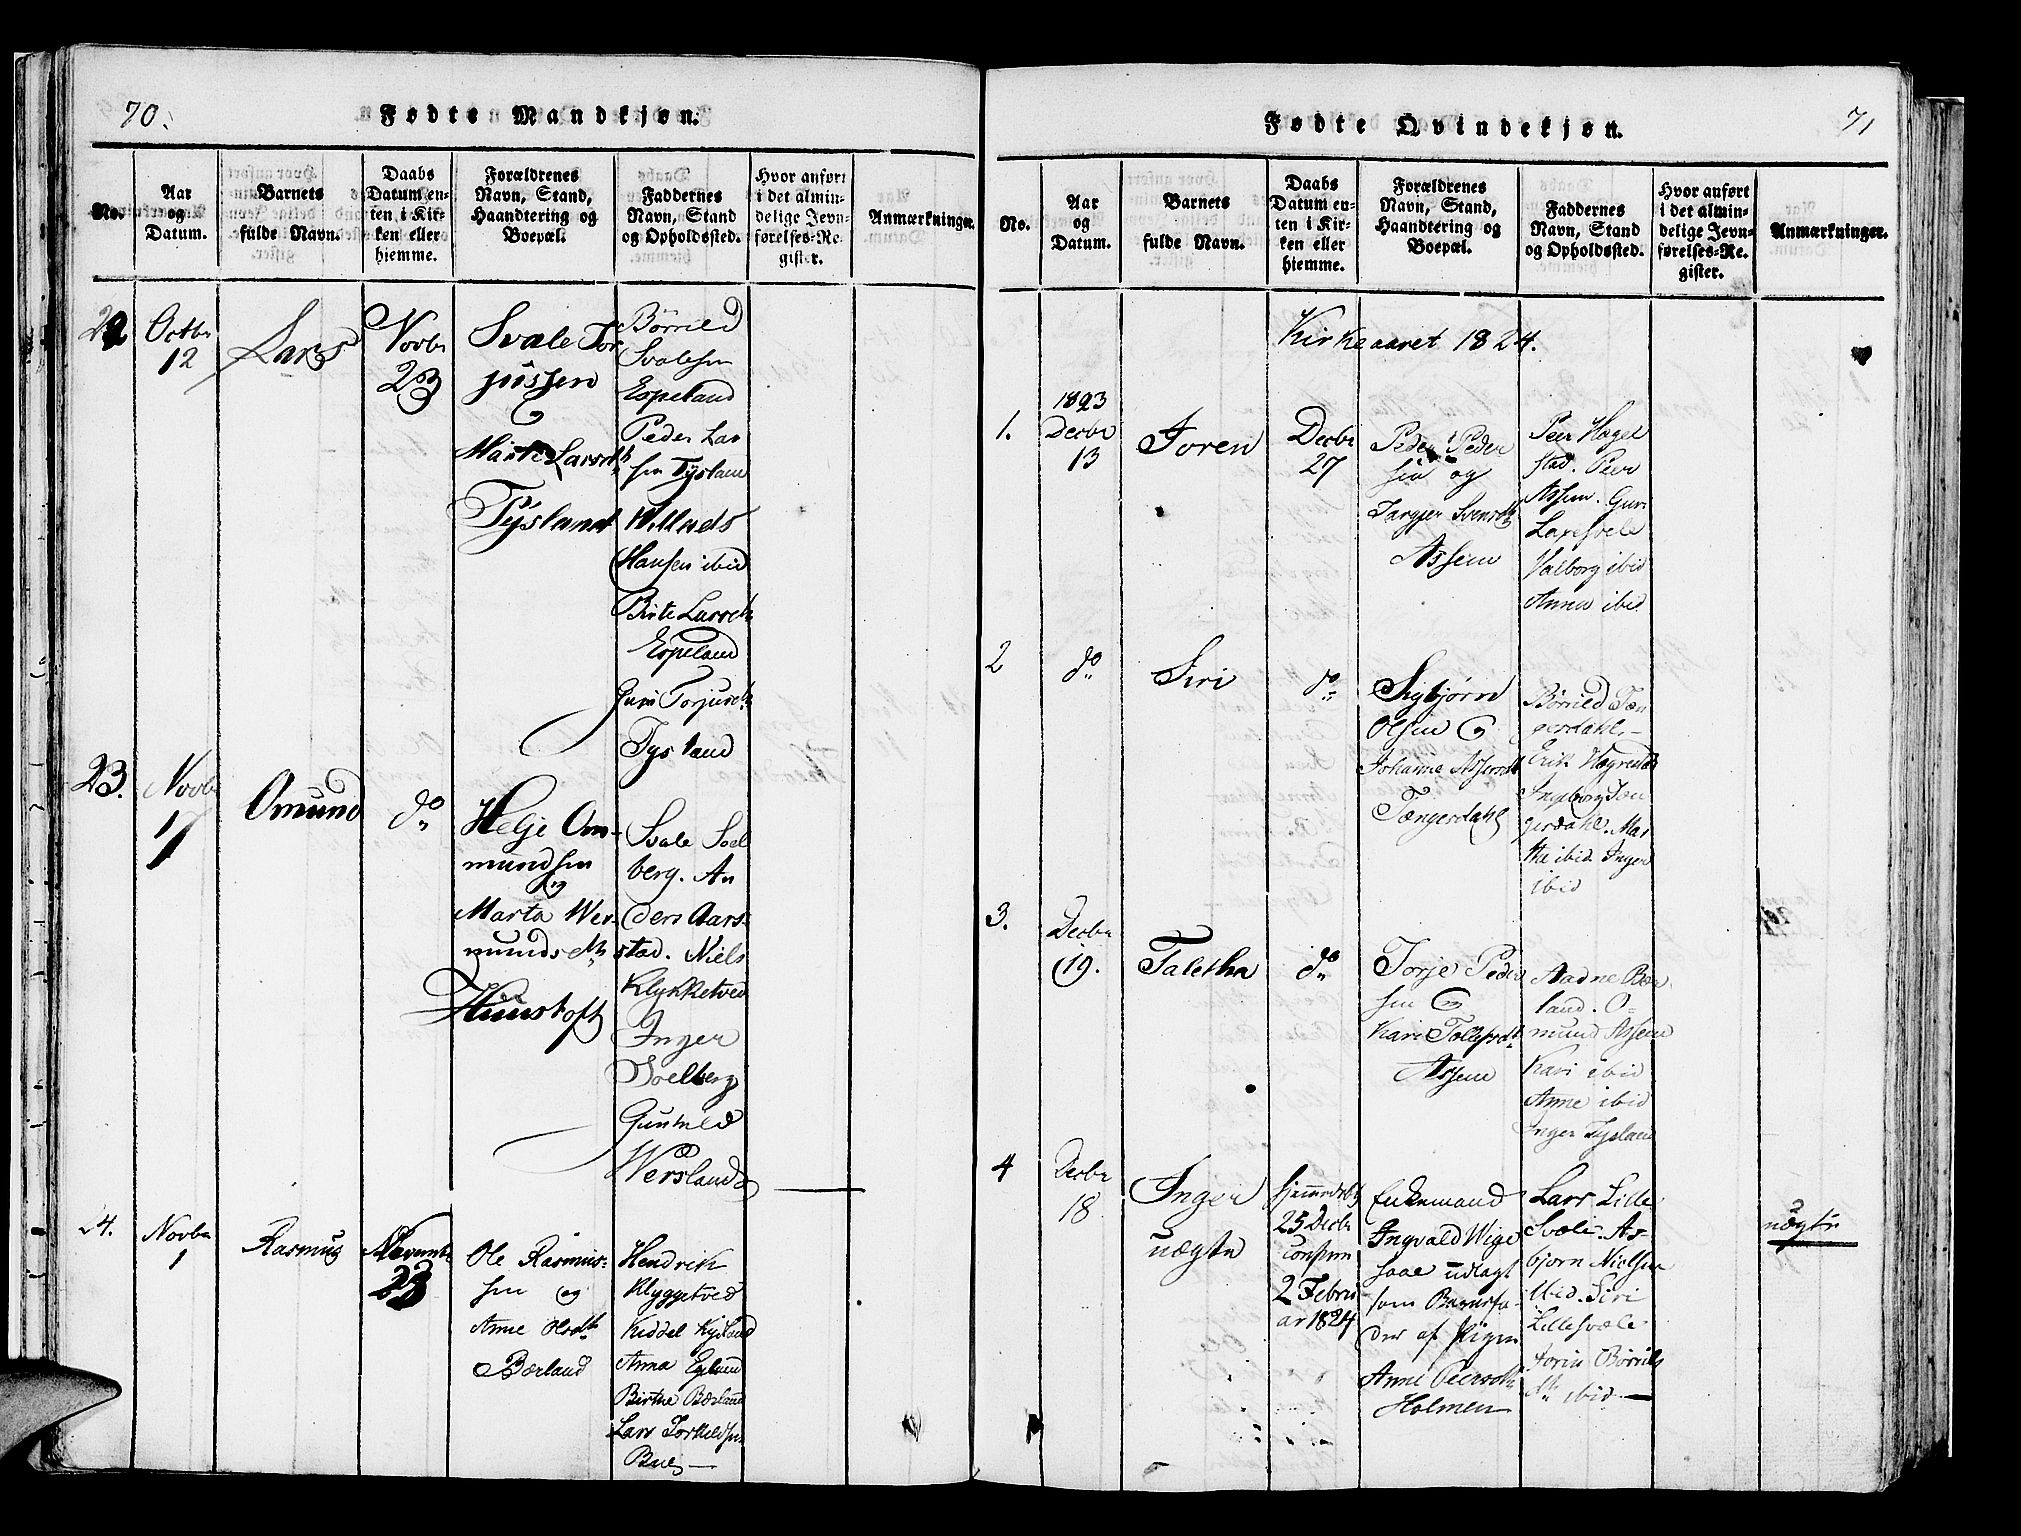 70.
Fødte Mandkjøn.
No.
Aar
og
Datum.
Barnets
fulde Navn.
Daabs
Datum en-
ten i Kir-
ken eller
hjemme.
Forældrenes
Navn, Stand,
Haandtering og
Boepæl.
Faddernes
Navn, Stand
og Opholdssted.
Hvor anført
i det almin-
delige Jevn-
førelses-Re-
gister.
Anmærkninger.
22
Octbr
12
Lars
Novbr
23
Svale Tor
jussen
Marte Larsdtr
Tysland
Børrild
Svalesen
Espeland
Peder Lar
sen Tysland
Mads
Hansen ibid
Birte Larsdtr
Espeland
Guri Torjusdtr
Tysland
23.
Novbr
17
Omund
do
Helje Om-
mundsen
og
Marta Wer-
munds Dtr
Hunstoft
Svale Soel
berg. An
ders Aars-
stad. Niels
Klykketved
Inger
Soelberg
Gunhild
Wersland
24.
Novbr
1
Rasmus
Novembr
23
Ole Rasmus-
sen og
Anne Olsdtr
Børland
Hendrik
Klyggetved
Kiddel Kysland
Anna Egeland
Birthe Børland
Lars Torkildsen
Bue
71
Fødte Qvindekjøn.
No.
Aar
og
Datum.
Barnets
fulde Navn.
Daabs
Datum en-
ten i Kir-
ken eller
hjemme.
Forældrenes
Navn, Stand,
Haandtering og
Boepæl.
Faddernes
Navn, Stand
og Opholdssted.
Hvor anført
i det almin-
delige Jevn-
førelses-Re-
gister.
Anmærkninger.
Kirkeaaret 1824.
1.
1823
Decbr
13
Joren
Decbr
27
Peder Peder
sen og
Svensdtr
Assem
Peer Hagel
stad. Peer
Assem. Guri
Laxesvele
Valborg ibid
Anna ibid
2
do
Siri
do
Sigbjørn
Olsen &
Johanne Assersdtr
Tængerdahl
Børrild Tæn
gerdahl.
Erik Hægrestad
Ingborg Tæn
gerdahl. Mar
the ibid. Inger
ibid
3.
Decbr
19.
Taletha
do
Torje Peder
sen &
Kari Tollefsdtr
Assem
Aadne Bør
land. O-
mund Assem
Kari ibid
Anne ibid
Inger Tysland
4
Decbr
18
Inger
uægte
hjemmedøbt
25 Decbr
Confirm
2 Febru
ar 1824
Enkemand
Ingvald Wige
saae udlagt
som Barnefa-
der af Pigen
Anne Peersdtr
Holmen
Lars Lille
Svele. As-
bjørn Nielsen
ibid. Siri
Lillesvele
Jorin Børrils
Dtr ibid
uægte